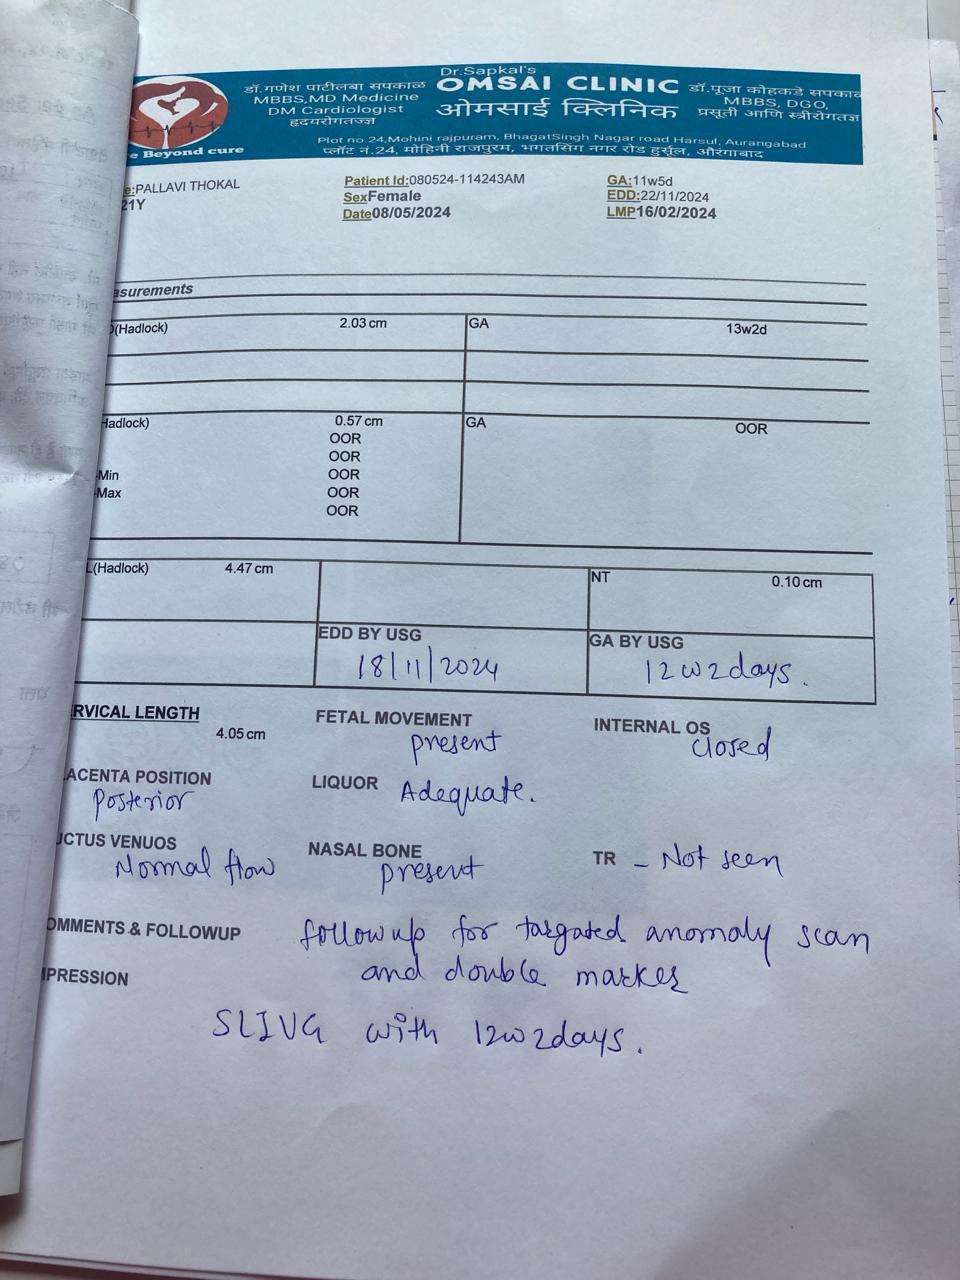 Dr.Sapkal's
डॉ.गणेश पाटीलबा सपकाळ OMSAI CLINIC डॉ.पूजा कोहकडे सपकाळ
MBBS,MD Medicine ओमसाई क्लिनिक MBBS, DGO,
DM Cardiologist प्रसूती आणि स्त्रीरोगतज्ञ
हृदयरोगतज्ज्ञ
e Beyond cure
Plot no.24,Mohini rajpuram, BhagatSingh Nagar road Harsul, Aurangabad
प्लॉट नं.24, मोहिनी राजपुरम, भगतसिंग नगर रोड हुर्सूल, औरंगाबाद
e:PALLAVI THOKAL Patient Id:080524-114243AM GA:11w5d
21Y SexFemale EDD:22/11/2024
Date08/05/2024 LMP16/02/2024
asurements
(Hadlock) 2.03 cm GA 13w2d
Hadlock) 0.57 cm GA OOR
OOR
OOR
-Min OOR
-Max OOR
OOR
L(Hadlock) 4.47 cm NT 0.10 cm
EDD BY USG GA BY USG
18/11/2024 12w2days.
RVICAL LENGTH FETAL MOVEMENT INTERNAL OS
4.05 cm present closed
ACENTA POSITION LIQUOR Adequate.
Posterior
UCTUS VENUOS NASAL BONE TR - Not seen
Normal flow present
OMMENTS & FOLLOWUP followup for targated anomaly scan
and double marker
PRESSION
SLIUG with 12w2days.